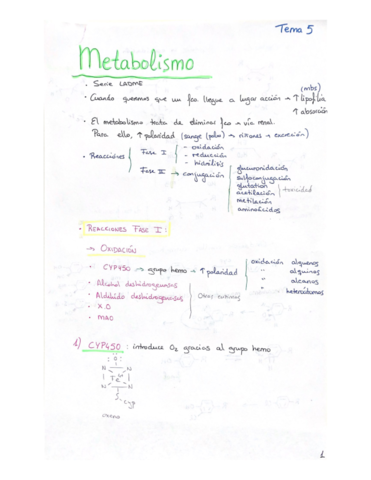 Tema 5
Metabolismo
· Serie LADME
· Cuando queremos que un fco. llegue a lugar acción → ↑ lipofilia (mbs)
↑ absorción
· El metabolismo trata de eliminar fco → vía renal.
Para ello, ↑ polaridad (sangre (polar) → riñones → excreción)
· Reacciones
Fase I
- oxidación
- reducción
- hidrólisis
Fase II → conjugación
glucuronidación
sulfoconjugación
glutation
acetilación
toxicidad
metilación
aminoácidos
· REACCIONES FASE I:
→ OXIDACIÓN
· CYP450 → grupo hemo → ↑ polaridad
oxidación alquenos
" alquinos
" alcanos
" heteroátomos
· Alcohol deshidrogenasas
· Aldehído deshidrogenasas
Otras enzimas
· X.O
· MAO
1) CYP450 : introduce O2 gracias al grupo hemo
O
N N
Fe
N N
S
Cys
1